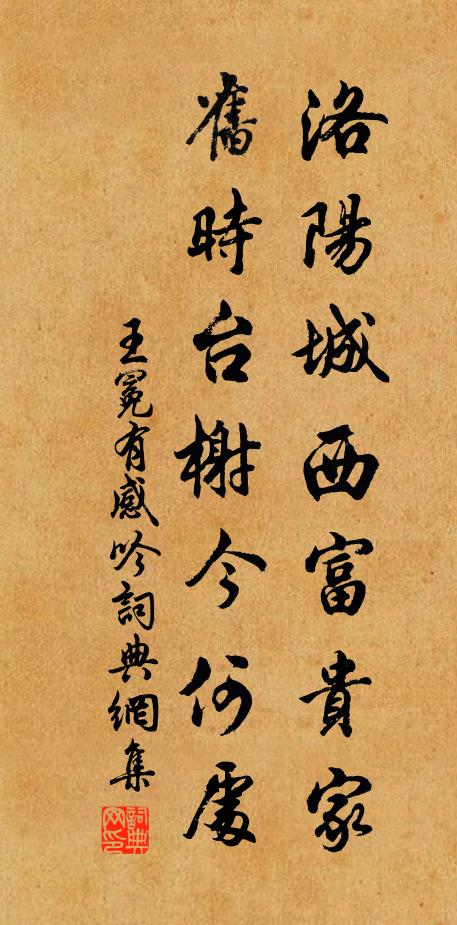 洛陽城西富貴家
舊時台榭今何處
王冕有感吟詞典網集
詞典網印